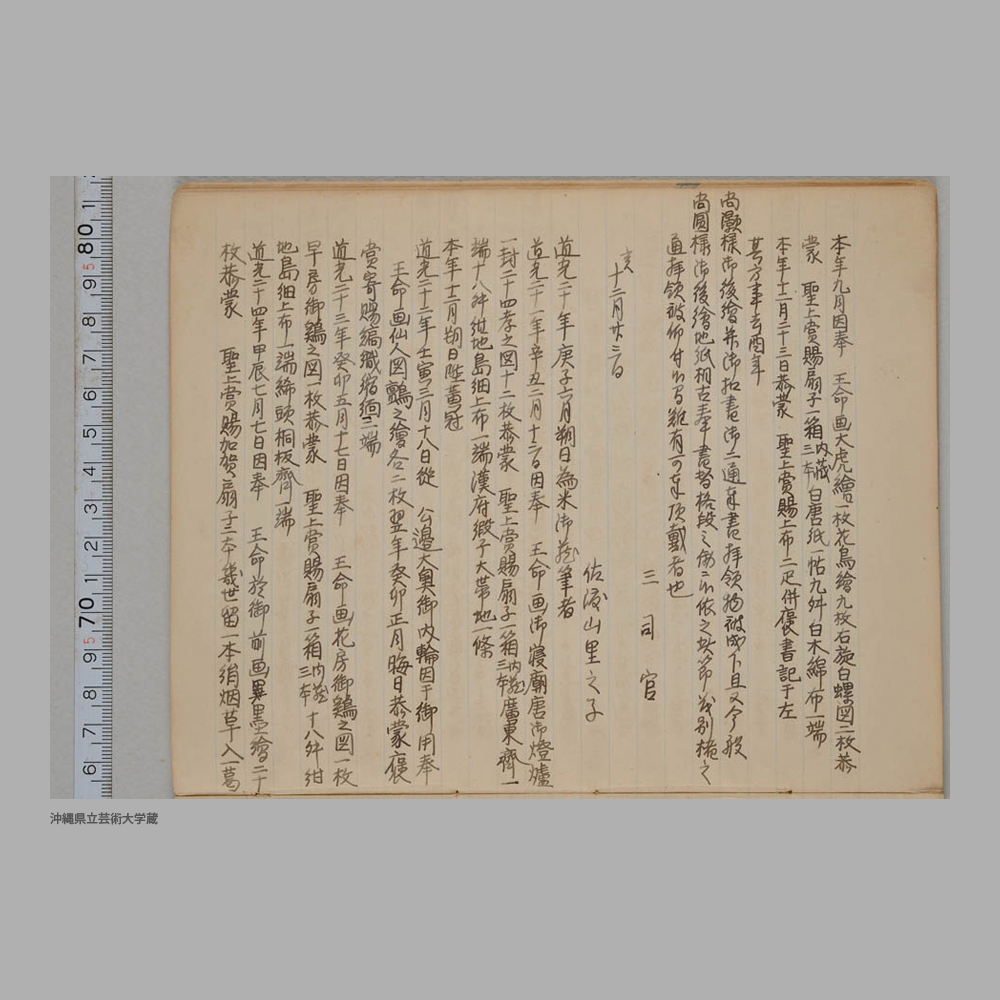 本年九月因奉 王命画大虎繪一枚花鳥繪九枚石旋白螺図二枚恭
蒙 聖上賞賜扇子一箱内藏三本白唐紙一帖九舛白木綿布一端
本年十二月二十三日恭蒙 聖上賞賜上布二疋併褒書記于左
其方事去酉年
尚灝様御後繪并御払書御二通奉書拝領物被成下且又今般
尚圓様御後繪地紙相古奉書替格段之御
通拝領被仰付候間難有可奉頂戴者也
三司官
亥十二月廿三日
佐渡山里之子
道光二十年庚子六月朔日為米御藏筆者
道光二十一年辛丑二月十二日因奉 王命画御寝廟唐御燈爐
一封二十四孝之図十二枚恭蒙 聖上賞賜扇子一箱内藏三本廣東齊一
端十八舛紺地島細上布一端漢府緞子大帯地一條
本年十二月朔日陞黄冠
道光二十二年壬寅三月十八日從 公邊大奥御内輪因于御用奉
王命画仙人図鸚之繪各二枚翌年癸卯正月晦日恭蒙褒
賞寄賜縞織縮緬二端
道光二十三年癸卯五月十七日因奉 王命画花房御鶏之図一枚
早房御鶏之図一枚恭蒙 聖上賞賜扇子一箱内藏三本十八舛紺
地島細上布一端締頭桐板齊一端
道光二十四年甲辰七月七日因奉 王命於御前画畢墨繪二十
枚恭蒙 聖上賞賜加賀扇子二本幾世留一本絹烟草入一葛
沖縄県立芸術大学蔵